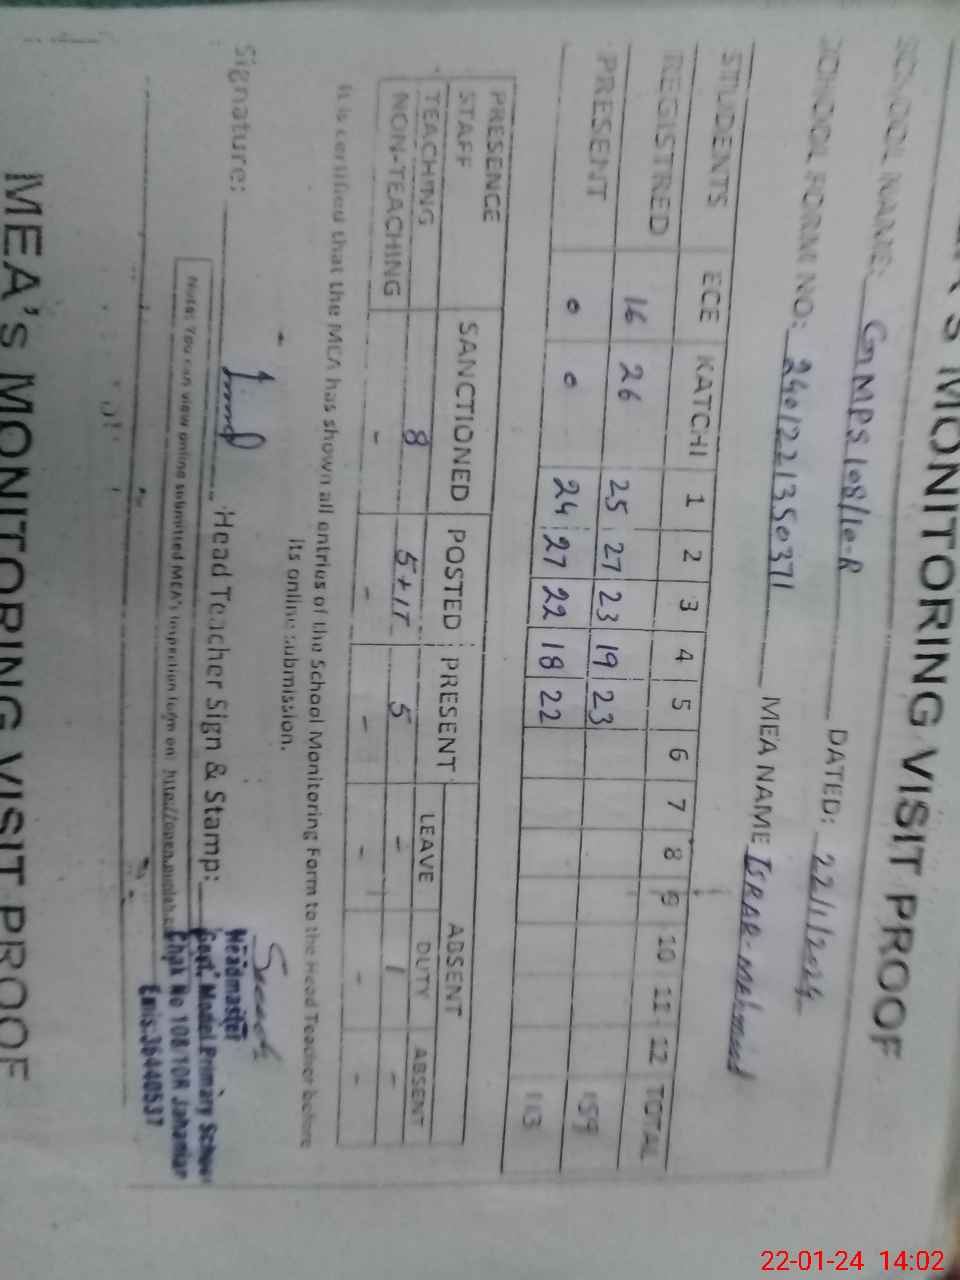 MONITORING VISIT PROOF
SCHOOL NAME: GMPS 108/10-R DATED: 22/1/2024
SCHOOL FORM NO: 2401221350371 MEA NAME ISRAR-Mahmood
STUDENTS ECE KATCHI 1 2 3 4 5 6 7 8 9 10 11 12 TOTAL
REGISTRED 16 26 25 27 23 19 23 159
PRESENT 0 0 24 27 22 18 22 113
PRESENCE STAFF SANCTIONED POSTED PRESENT ABSENT
LEAVE DUTY ABSENT
TEACHING 8 5+1T 5 - 1 -
NON-TEACHING - - - - - -
It is certified that the MEA has shown all entries of the School Monitoring Form to the Head Teacher before
its online submission.
Signature: Head Teacher Sign & Stamp:
Headmaster
Govt. Model Primary School
Chak No 108/10R Jahanian
Emis:36440537
Note: You can view online submitted MEA's Inspection form on:
MEA'S MONITORING VISIT PROOF
22-01-24 14:02